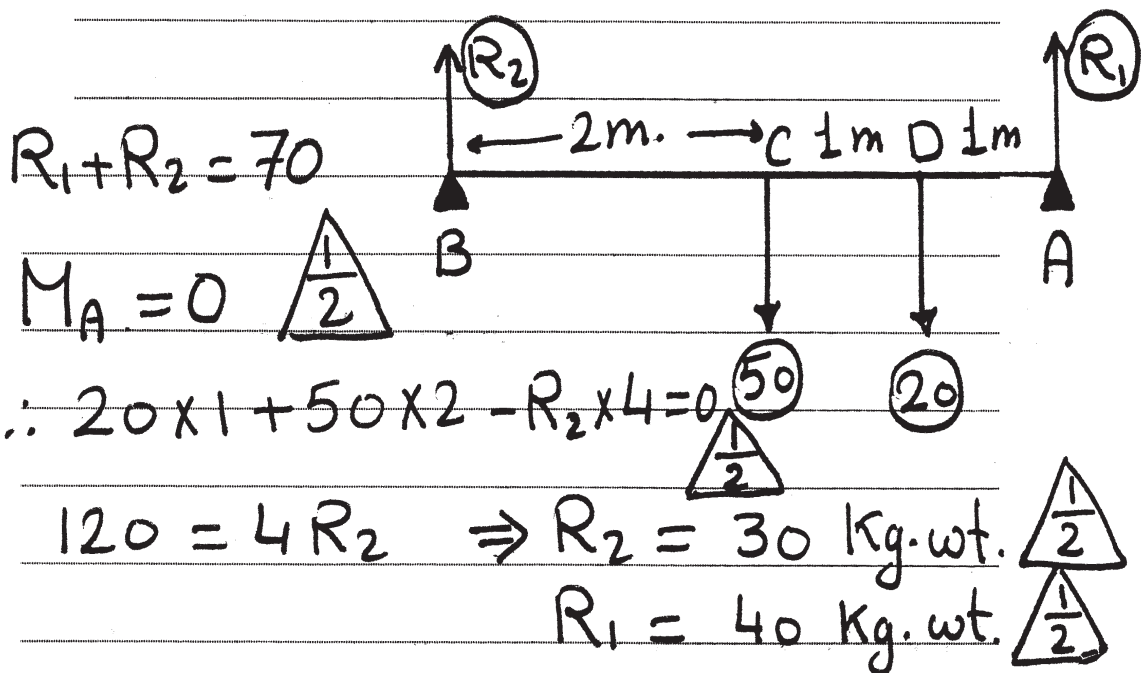 R₂ R₁
← 2m. → C 1m D 1m
R₁ + R₂ = 70
B A
M_A = 0 1/2
50 20
∴ 20 × 1 + 50 × 2 - R₂ × 4 = 0 1/2
120 = 4 R₂ ⇒ R₂ = 30 Kg. wt. 1/2
R₁ = 40 Kg. wt. 1/2